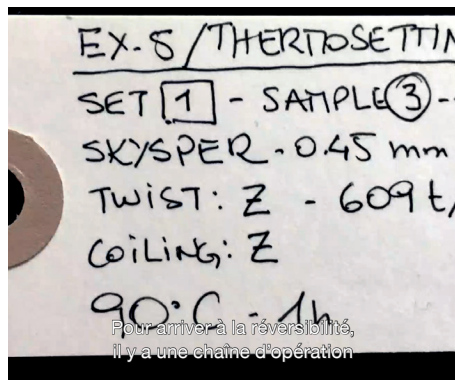 EX-8/THERMOSETTIN
SET 1 - SAMPLE 3 -
SKYSPER - 0.45 mm
TWIST: Z - 609 t/
COILING: Z
90°C - 1h
Pour arriver à la réversibilité,
il y a une chaîne d'opération